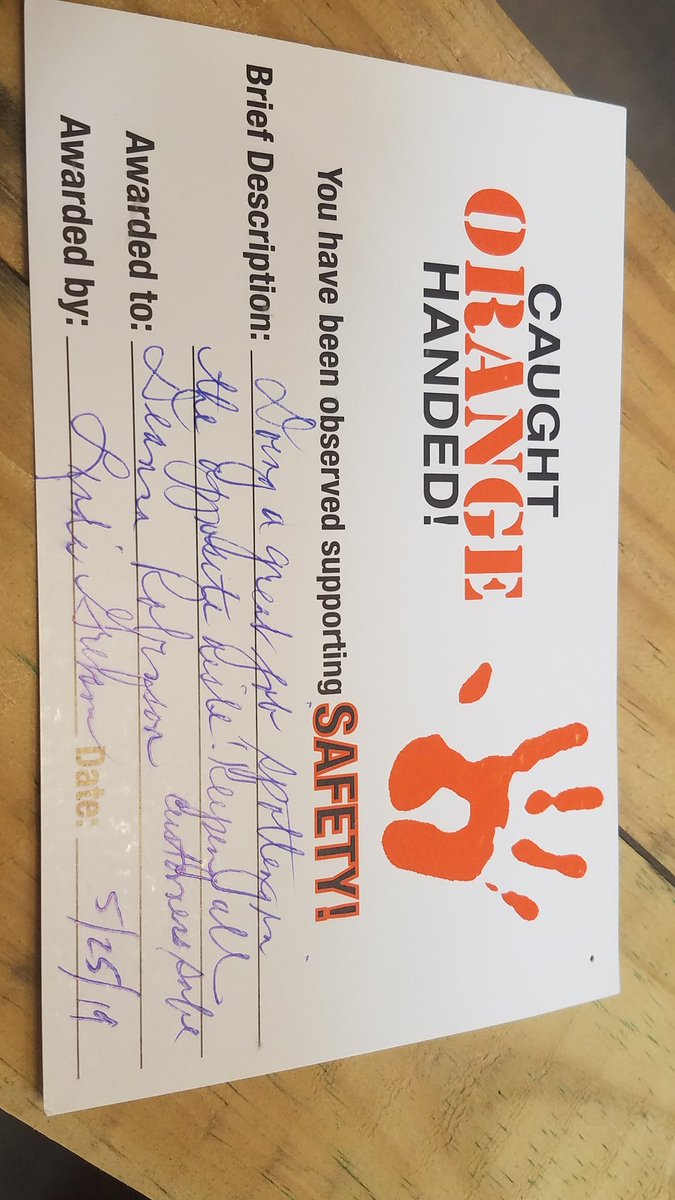 CAUGHT
ORANGE
HANDED!
You have been observed supporting SAFETY!
Brief Description: Doing a great job spotting in
the opposite aisle. Keeping all
customers safe
Awarded to: Deanna Robinson
Awarded by: Date: 5/25/19